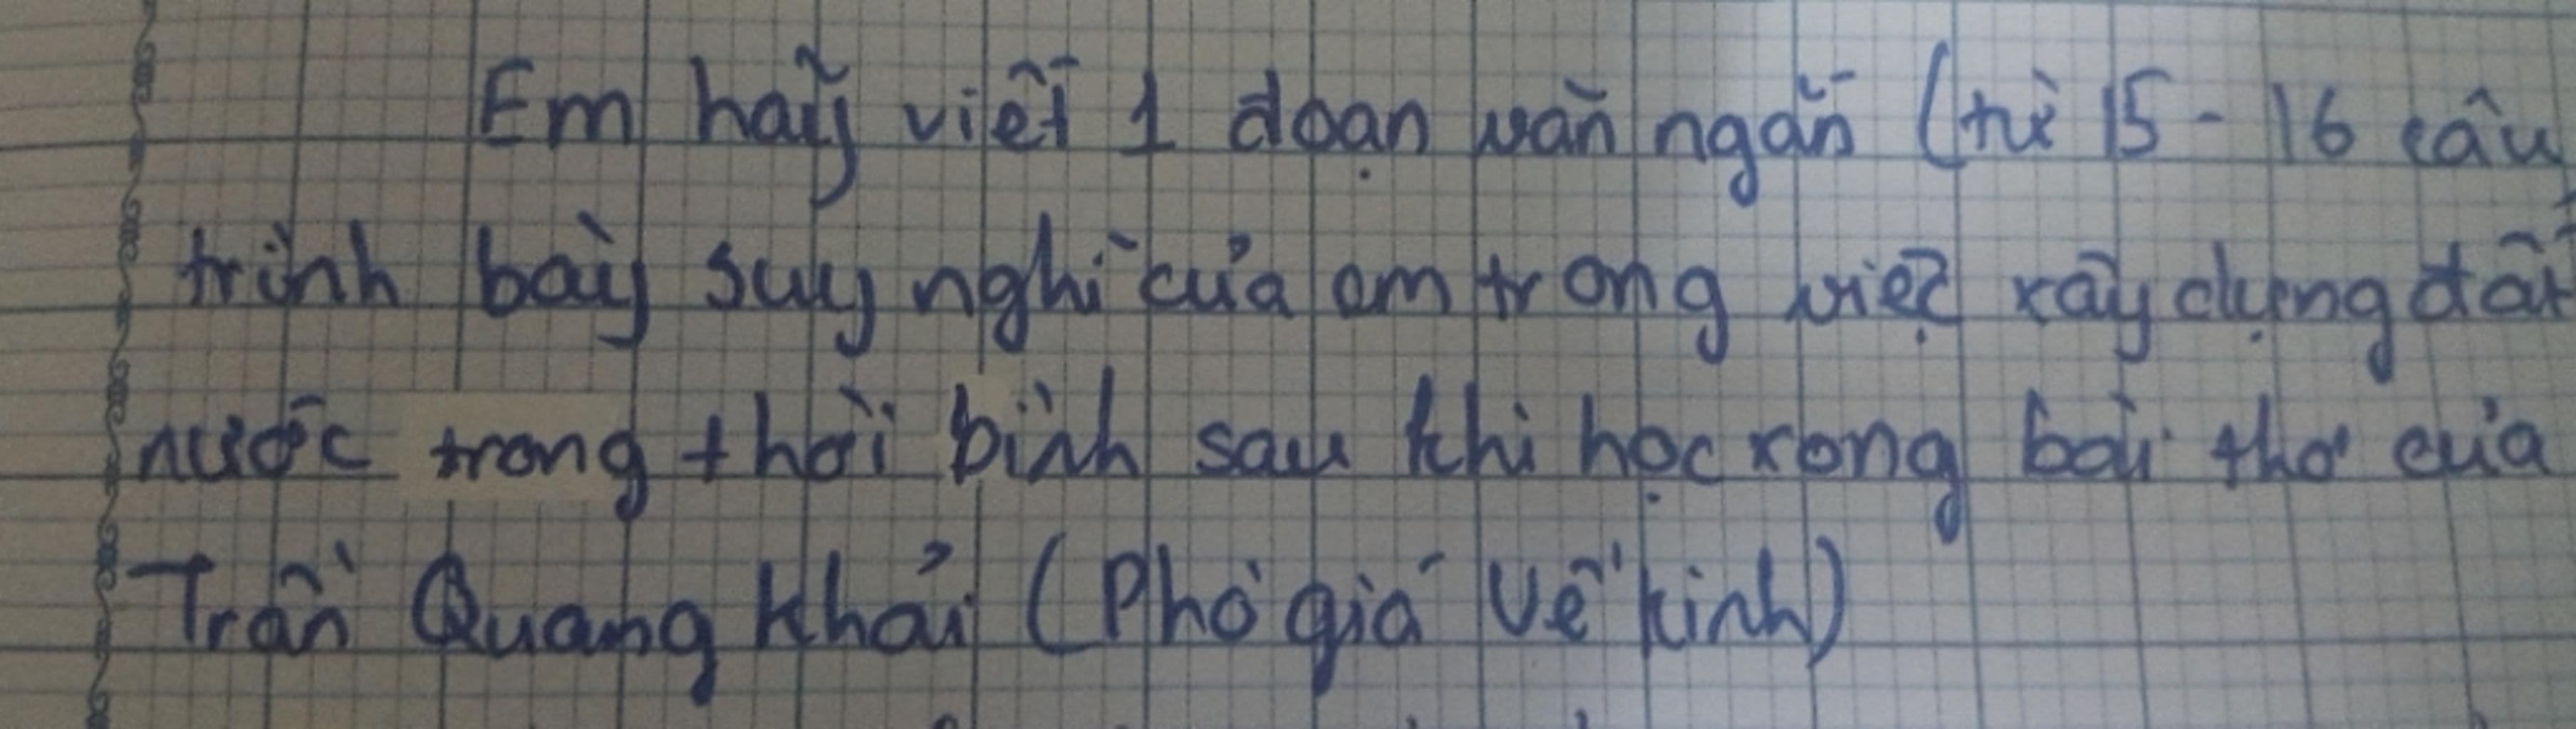 Em hãy viết 1 đoạn văn ngắn (từ 15 - 16 câu)
trình bày suy nghĩ của em trong việc xây dựng đất
nước trong thời bình sau khi học xong bài thơ của
Trần Quang Khải (Phò giá về kinh)